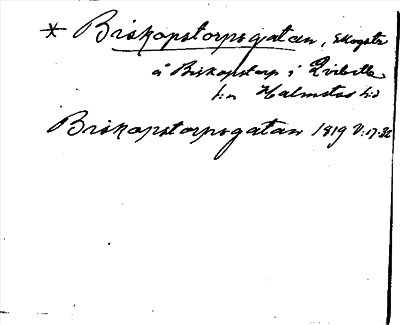 * Biskopstorpsgatan, skogstr
å Biskopstorp i Qvibille
sn Halmstads hd
Biskopstorpsgatan 1819 V:17:32